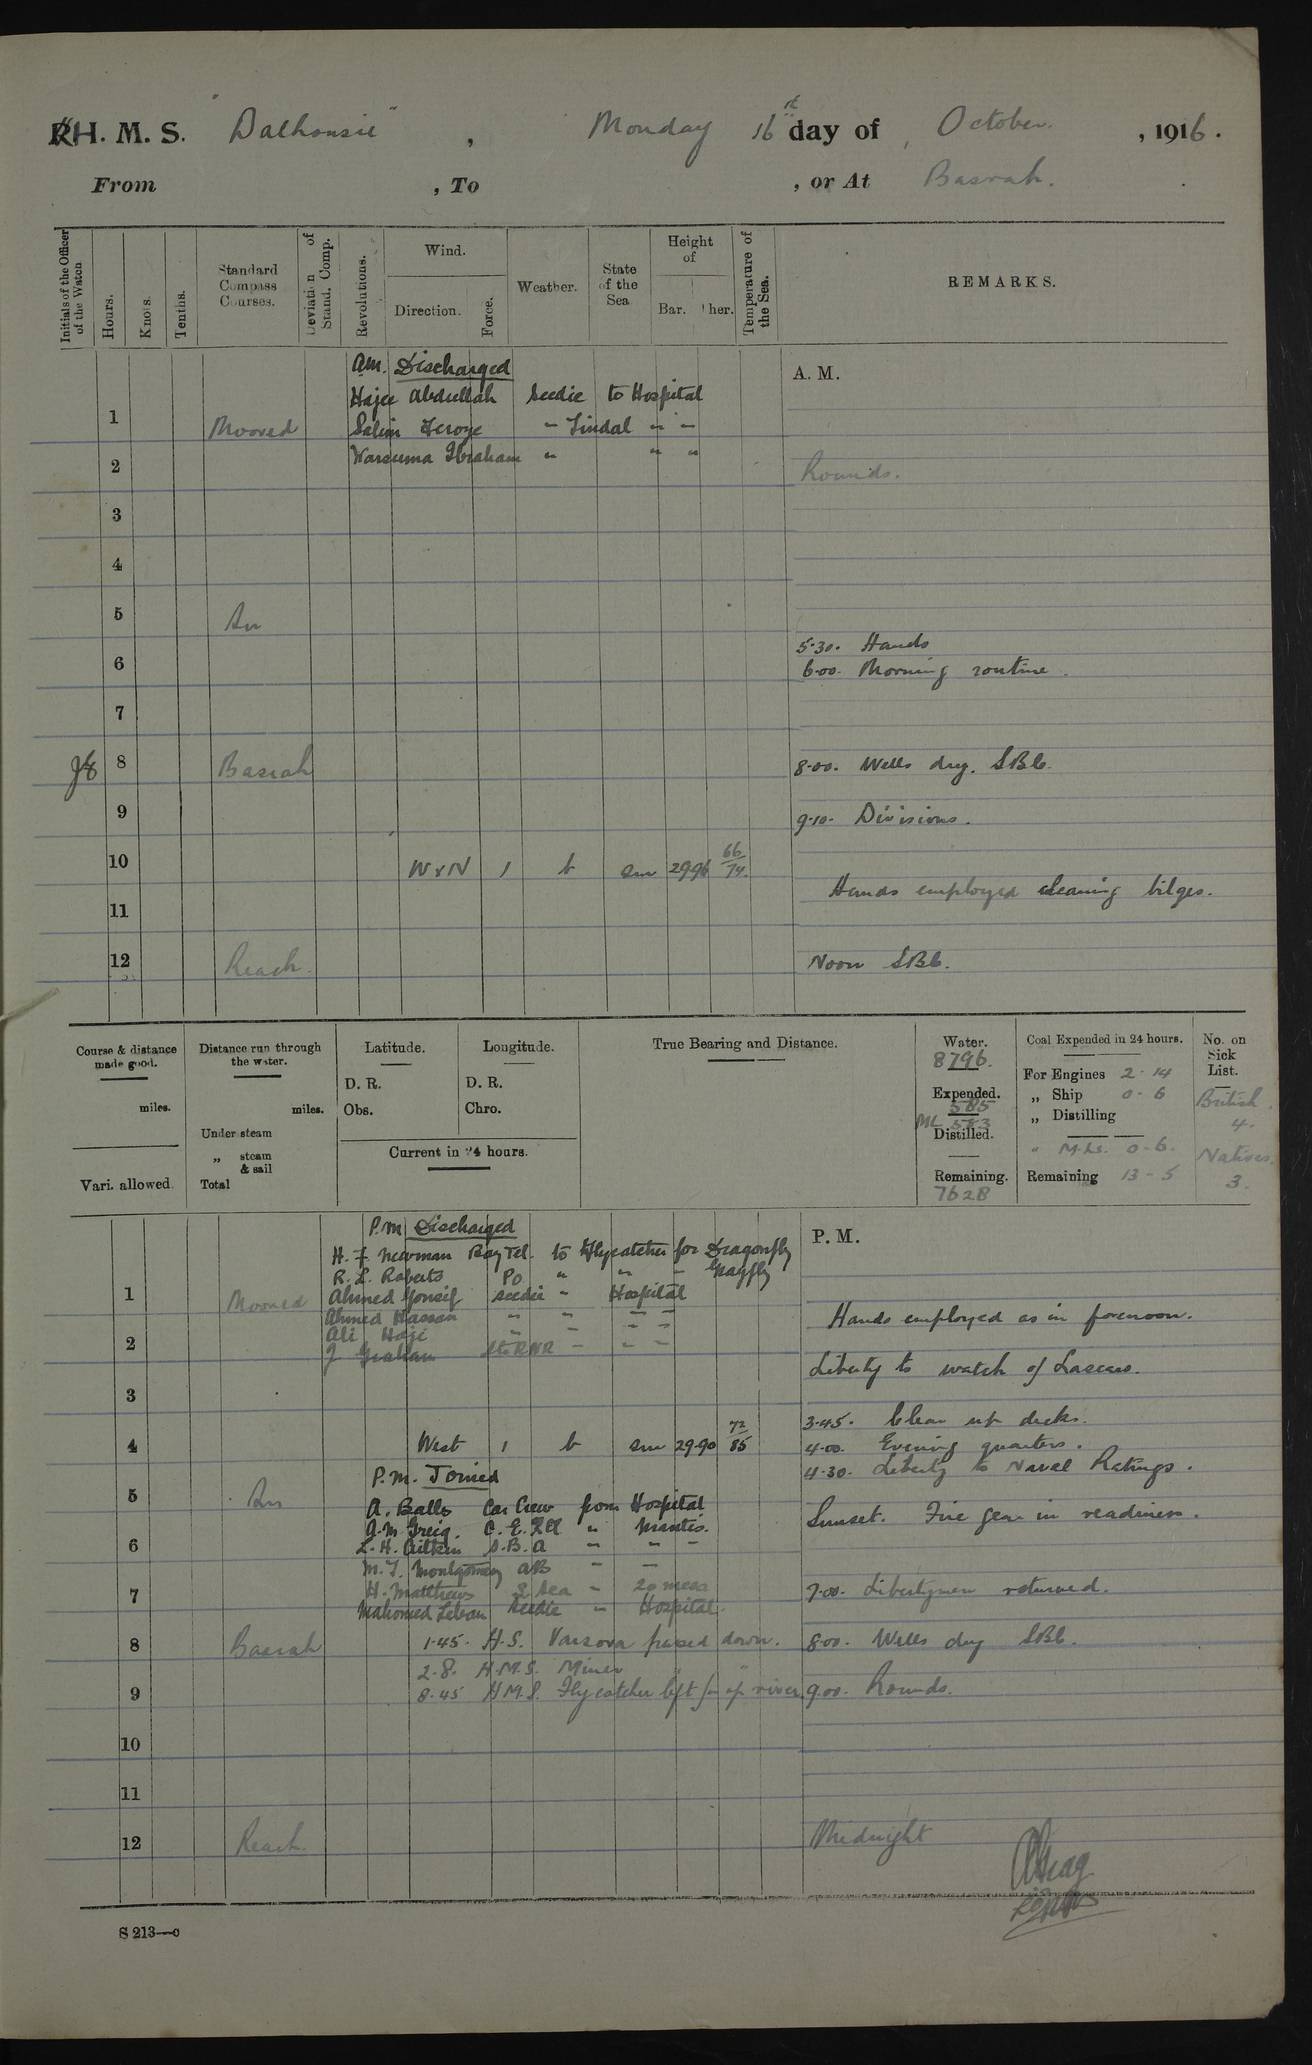 R.H. M. S. "Dalhousie", Monday 16 day of October, 1916.
From , To , or At Basrah.
Initials of the Officer of the Watch
Hours.
Knots.
Tenths.
Standard Compass Courses.
Deviation of Stand. Comp.
Revolutions.
Wind.
Direction. Force.
Weather.
State of the Sea
Height of
Bar. Ther.
Temperature of the Sea.
REMARKS.
A.M. Discharged
A. M.
Hajee Abdullah Seedie to Hospital
1 Moored Salim Feroze " Tindal " "
Warsuma Ibraham " " "
2 Rounds.
3
4
5 In
5.30. Hands
6 6.00. Morning routine.
7
8 Basrah 8.00. Wells dry. SBC.
9 9.10. Divisions.
10 W x N 1 b sm 29.96 66/74.
Hands employed cleaning bilges.
11
12 Reach. Noon SBC.
Course & distance made good.
miles.
Vari. allowed.
Distance run through the water.
miles.
Under steam
„ steam & sail
Total
Latitude.
D. R.
Obs.
Longitude.
D. R.
Chro.
Current in 24 hours.
True Bearing and Distance.
Water.
8796.
Expended.
585
ML 583
Distilled.
Remaining.
7628
Coal Expended in 24 hours.
For Engines 2 - 14
„ Ship 0 - 6
„ Distilling
" M.Ls. 0 - 6.
Remaining 13 - 5
No. on Sick List.
British
4.
Natives.
3.
P.M. Discharged
P. M.
H. F. Newman Boy Tel. to Flycatcher for Dragonfly
R. L. Roberts PO " " " Grayfly
1 Moored Ahmed Yousif Seedie " Hospital
Ahmed Hassan " " " "
Hands employed as in forenoon.
Ali Haji " " " "
2 J Graham Sto RNR " " "
Liberty to watch of Lascars.
3
3.45. Clear up decks.
4 West 1 b sm 29.90 72/85 4.00. Evening quarters.
4.30. Liberty to Naval Ratings.
P.M. Joined
5 In A. Balls Car Crew from Hospital
Sunset. Fire gear in readiness.
A.M. Greig. C. E. " Mantis.
6 L. H. Aitken S.B.A " " "
M. J. Montgomery AB " "
7 H. Matthews " 
7.00. Libertymen returned.
Mahomed Leban Seedie " Hospital.
8 Basrah 1.45. H.S. Varsova passed down. 8.00. Wells dry SBC.
2.8. H.M.S. Miner " "
9 8.45 HMS. Flycatcher left for up river. 9.00. Rounds.
10
11
12 Reach. Midnight
S 213—c